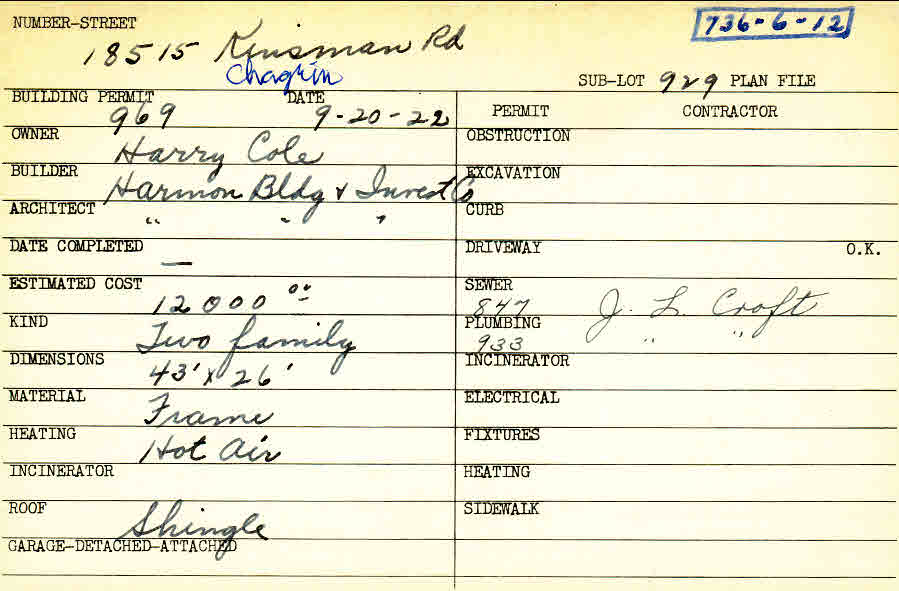 NUMBER-STREET
736-6-12
18515 Kinsman Rd
Chagrin
SUB-LOT 929 PLAN FILE
BUILDING PERMIT DATE
969 9-20-22
PERMIT CONTRACTOR
OWNER
Harry Cole
OBSTRUCTION
BUILDER
Harmon Bldg & Invest Co
EXCAVATION
ARCHITECT
" " "
CURB
DATE COMPLETED
—
DRIVEWAY O.K.
ESTIMATED COST
12000 00
SEWER
847 J. L. Croft
KIND
Two family
PLUMBING
933 " "
DIMENSIONS
43' x 26'
INCINERATOR
MATERIAL
Frame
ELECTRICAL
HEATING
Hot Air
FIXTURES
INCINERATOR
HEATING
ROOF
Shingle
SIDEWALK
GARAGE-DETACHED-ATTACHED